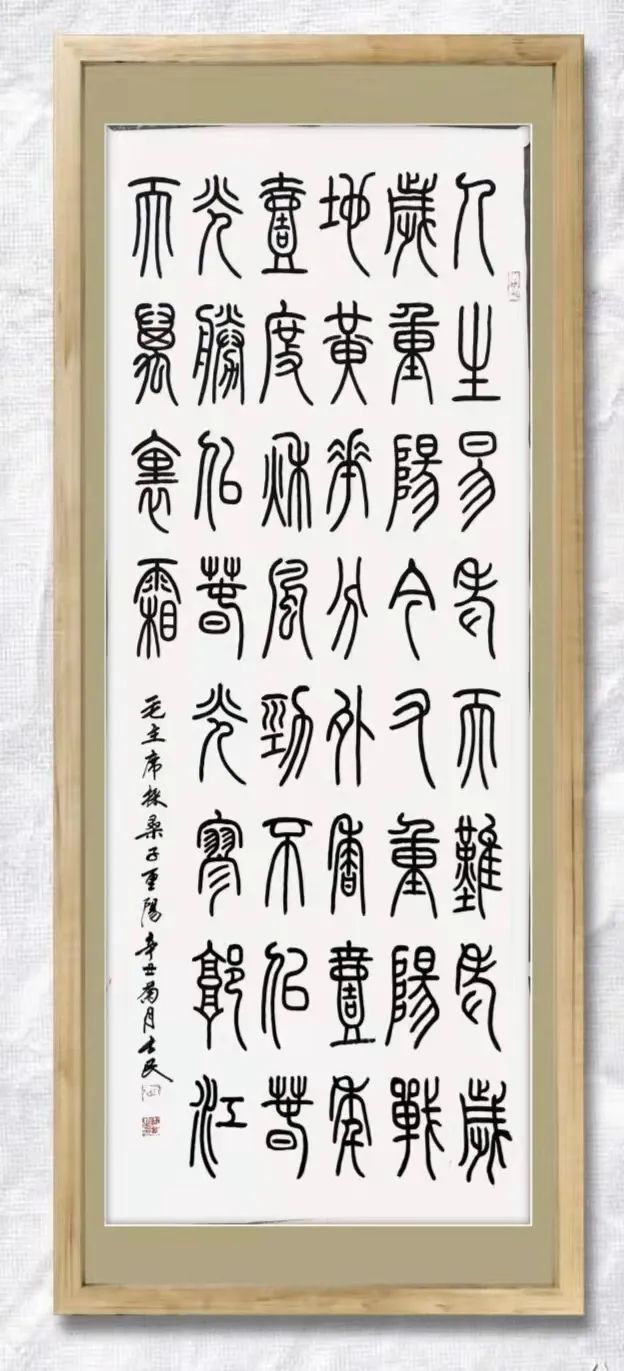 人生易老天難老歲
歲重陽今又重陽戰
地黃花分外香壹年
壹度秋風勁不似春
光勝似春光寥廓江
天萬裏霜
毛主席採桑子重陽辛丑菊月